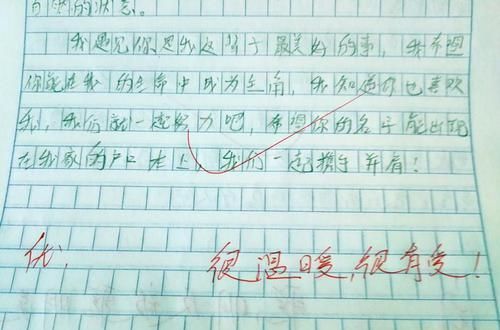 白的状态。
我遇见你是我这辈子最美好的事，我希望
你能在我的生命中成为主角，我知道你也喜欢
我，我们就一起努力吧，希望你的名字能出现
在我家的户口本上，我们一起携手并肩！
优. 很温暖，很有爱！